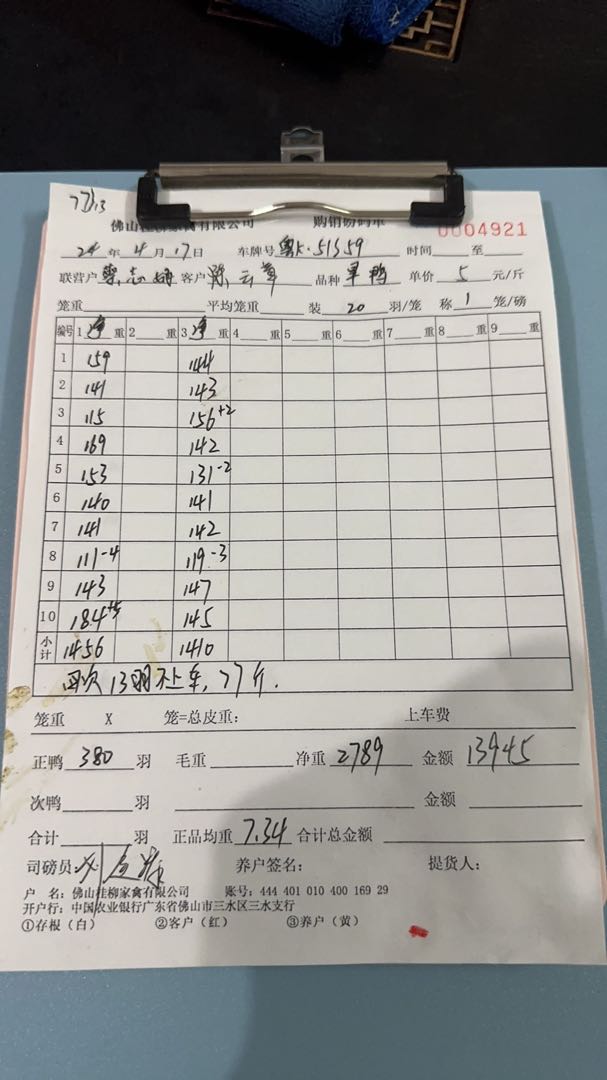 77斤/13
佛山桂柳家禽有限公司 购销磅码单
0004921
24 年 4 月 17 日 车牌号 粤K·51S59 时间 至
联营户 客户 云 品种 单鸭 单价 5 元/斤
笼重 平均笼重 装 20 羽/笼 称 1 笼/磅
编号 1 净 重 2 重 3 净 重 4 重 5 重 6 重 7 重 8 重 9 重
1 159 144
2 141 143
3 115 156+2
4 169 142
5 153 131-2
6 140 141
7 141 142
8 111-4 119-3
9 143 147
10 184+5 145
小计 1456 1410
回次13羽不上车, 77斤.
笼重 X 笼=总皮重: 上车费
正鸭 380 羽 毛重 净重 2789 金额 13945
次鸭 羽 金额
合计 羽 正品均重 7.34 合计总金额
司磅员: 养户签名: 提货人:
户 名: 佛山桂柳家禽有限公司 账号: 444 401 010 400 169 29
开户行: 中国农业银行广东省佛山市三水区三水支行
①存根(白) ②客户(红) ③养户(黄)